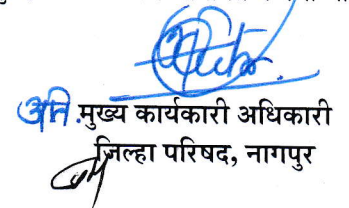 अति. मुख्य कार्यकारी अधिकारी
जिल्हा परिषद, नागपुर